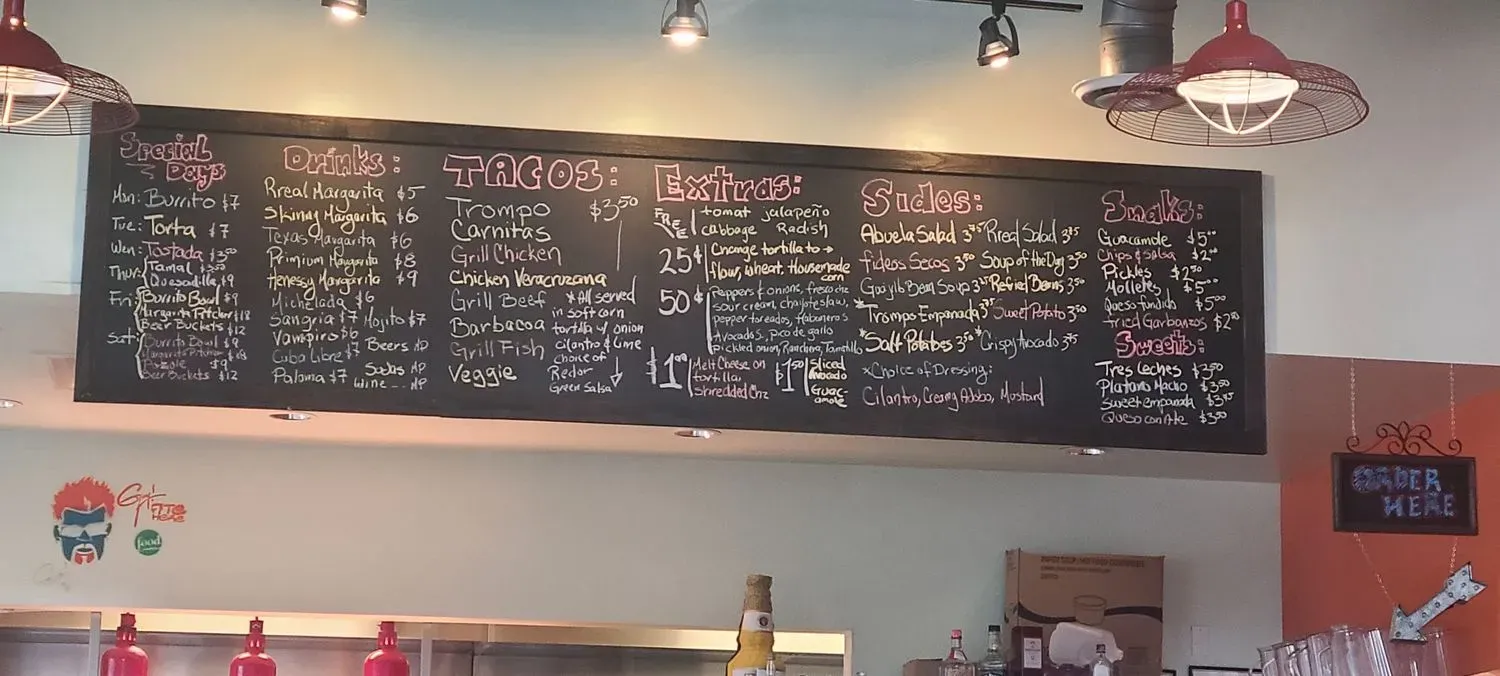 Special
Days
Mon: Burrito $7
Tue: Torta $7
Wen: Tostada $3.50
Thur: Tamal $3.50
Quesadilla $9
Fri: Burrito Bowl $9
Margarita Pitcher $18
Beer Buckets $12
Sat: Burrito Bowl $9
Margarita Pitcher $18
$9
Beer Buckets $12
Drinks:
Rreal Margarita $5
Skinny Margarita $6
Texas Margarita $6
Primium Margarita $8
Henessy Margarita $9
Michelada $6
Sangria $7 Mojito $7
Vampiro $6
Cuba Libre $7 Beers MP
Paloma $7 Sodas MP
Wine --- MP
TACOS:
Trompo $3.50
Carnitas
Grill Chicken
Chicken Veracruzana
Grill Beef
Barbacoa
Grill Fish
Veggie
*All served
in soft corn
tortilla w/ onion
cilantro & lime
choice of
Red or
Green Salsa
Extras:
FREE tomat jalapeño
cabbage Radish
25¢ Change tortilla to →
flour, wheat, Housemade
corn
50¢ Peppers & onions, fresco chz
sour cream, chayote slaw,
pepper toreados, Habanero s
Avocado S., pico de gallo
pickled onion, Ranchera, Tamatillo
$1.00 Melt Cheese on
tortilla
shredded Chz
$1.50 Sliced
Avocado
Guac-
amole
Sides:
Abuela Salad 3.75 Rreal Salad 3.75
fideos Secos 3.50 Soup of the Day 3.50
Guajillo Bean Soup 3.25 Refried Beans 3.50
*Tromps Empanada 3.75 Sweet Potato 3.50
*Salt Potatoes 3.50 *Crispy Avocado 3.75
*Choice of Dressing:
Cilantro, Creamy Adobo, Mustard
Snaks:
Guacamole $5.00
Chips & Salsa $2.00
Pickles $2.50
Molletes $5.00
Queso fundido $5.00
Fried Garbanzos $2.00
Sweets:
Tres Leches $3.50
Platano Macho $3.50
Sweet empanada $3.75
Queso con Ate $3.50
food
ORDER
HERE